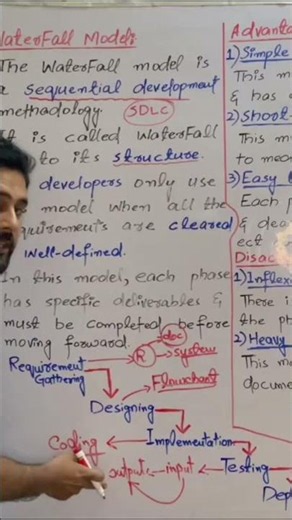 WaterFall Model:
The WaterFall model is
a sequential development
methodology. SDLC
It is called WaterFall
to its structure.
developers only use
model when all the
quirements are cleared
well-defined.
In this model, each phase
has specific deliverables &
must be completed before
moving forward.
doc
Requirement
Gathering
R
system
Flowchart
Designing
Coding
Implementation
input
Testing
Dep
Advanta
1) Simple
This m
& has
2) Shoot
This m
to
3) Easy
Each p
& dea
ect
Disac
1) Inflexi
There i
the ph
2) Heavy
This mo
docume